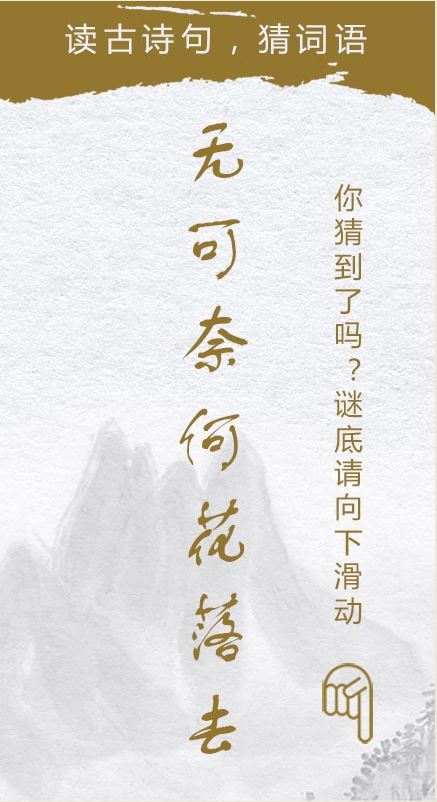 读古诗句，猜词语
无可奈何花落去
你猜到了吗？谜底请向下滑动